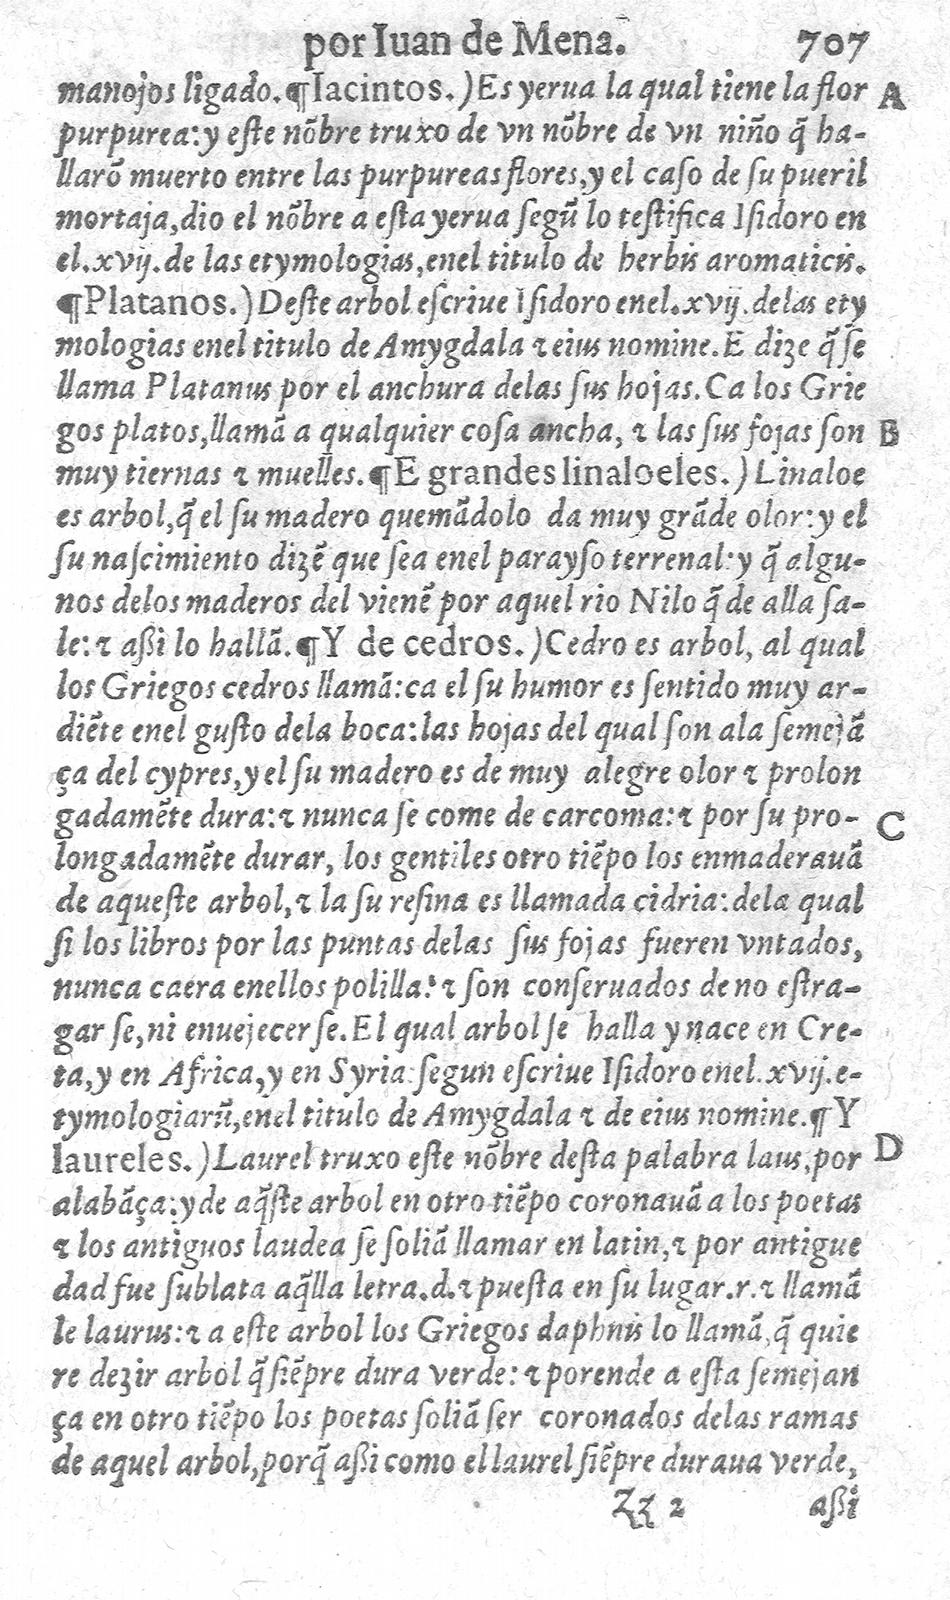 por Iuan de Mena. 707
manojos ligado.¶Iacintos.)Es yerua la qual tiene la flor A
purpurea:y eſte nõbre truxo de vn nõbre de vn niño q̃ ha-
llarõ muerto entre las purpureas flores,y el caſo de ſu pueril
mortaja,dio el nõbre a eſta yerua ſegũ lo teſtifica Iſidoro en
el.xvij.de las etymologias,enel titulo de herbis aromaticis.
¶Platanos.)Deſte arbol eſcriue Iſidoro enel.xvij.delas ety
mologias enel titulo de Amygdala ⁊ eius nomine.E dize q̃ ſe
llama Platanus por el anchura delas ſus hojas.Ca los Grie
gos platos,llamã a qualquier coſa ancha, ⁊ las ſus fojas ſon B
muy tiernas ⁊ muelles.¶E grandes linaloeles.)Linaloe
es arbol,q̃ el ſu madero quemãdolo da muy grãde olor:y el
ſu naſcimiento dizẽ que ſea enel parayſo terrenal:y q̃ algu-
nos delos maderos del vienẽ por aquel rio Nilo q̃ de alla ſa-
le:⁊ aßi lo hallã.¶Y de cedros.)Cedro es arbol, al qual
los Griegos cedros llamã:ca el ſu humor es ſentido muy ar-
diẽte enel guſto dela boca:las hojas del qual ſon ala ſemejã
ça del cypres,y el ſu madero es de muy alegre olor ⁊ prolon
gadamẽte dura:⁊ nunca ſe come de carcoma:⁊ por ſu pro- C
longadamẽte durar, los gentiles otro tiẽpo los enmaderauã
de aqueſte arbol,⁊ la ſu reſina es llamada cidria:dela qual
ſi los libros por las puntas delas ſus fojas fueren vntados,
nunca caera enellos polilla:⁊ ſon conſeruados de no eſtra-
gar ſe,ni enuejecer ſe.El qual arbol ſe halla y nace en Cre-
ta,y en Africa,y en Syria:ſegun eſcriue Iſidoro enel.xvij.e-
tymologiarũ,enel titulo de Amygdala ⁊ de eius nomine.¶Y
laureles.)Laurel truxo eſte nõbre deſta palabra laus,por D
alabãça:y de aq̃ſte arbol en otro tiẽpo coronauã a los poetas
⁊ los antiguos laudea ſe ſoliã llamar en latin,⁊ por antigue
dad fue ſublata aq̃lla letra.d.⁊ pueſta en ſu lugar.r.⁊ llamã
le laurus:⁊ a eſte arbol los Griegos daphnis lo llamã,q̃ quie
re dezir arbol q̃ ſiẽpre dura verde:⁊ porende a eſta ſemejan
ça en otro tiẽpo los poetas ſoliã ſer coronados delas ramas
de aquel arbol,porq̃ aßi como el laurel ſiẽpre duraua verde,
Zz 2 aßi